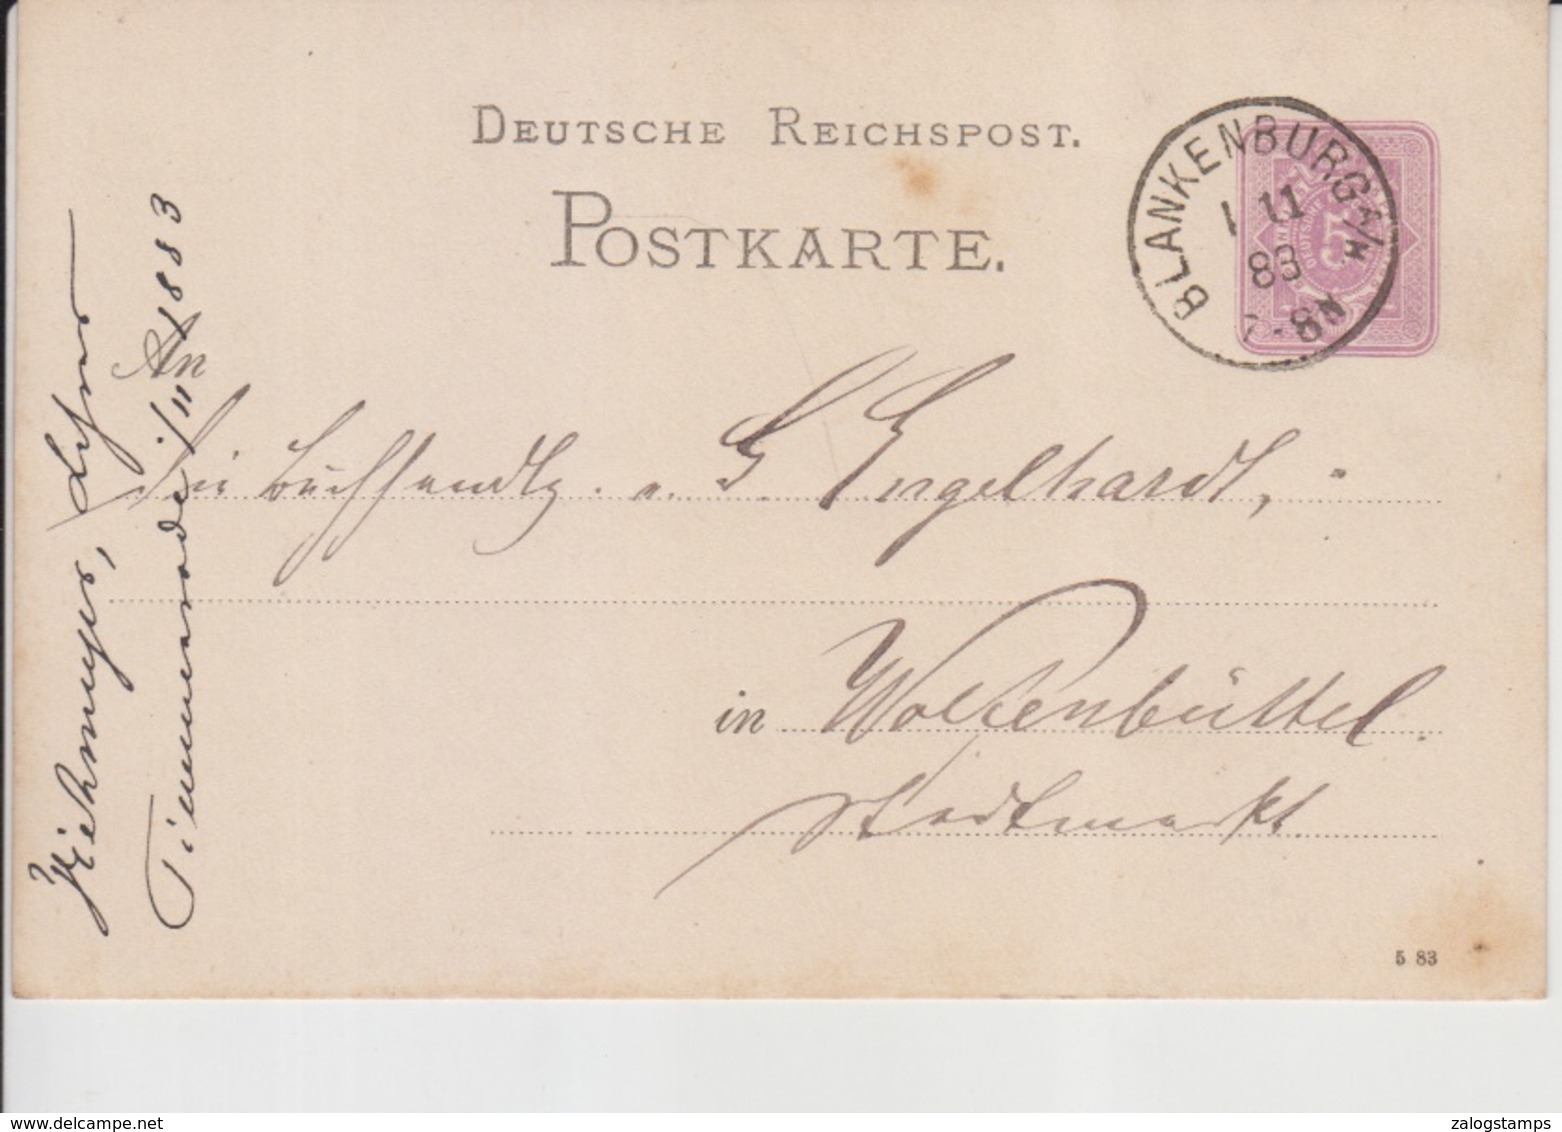 DEUTSCHE REICHSPOST.
POSTKARTE.
BLANKENBURG A/H
1 11
83
7-8N
5
An
die Buchhandlg. v. G. Engelhardt,
in Wolfenbüttel.
Stadtmarkt.
Viehmeyer, Lehrer
Timmenrode 1/11 1883
5 83
www.delcampe.net
zalogstamps